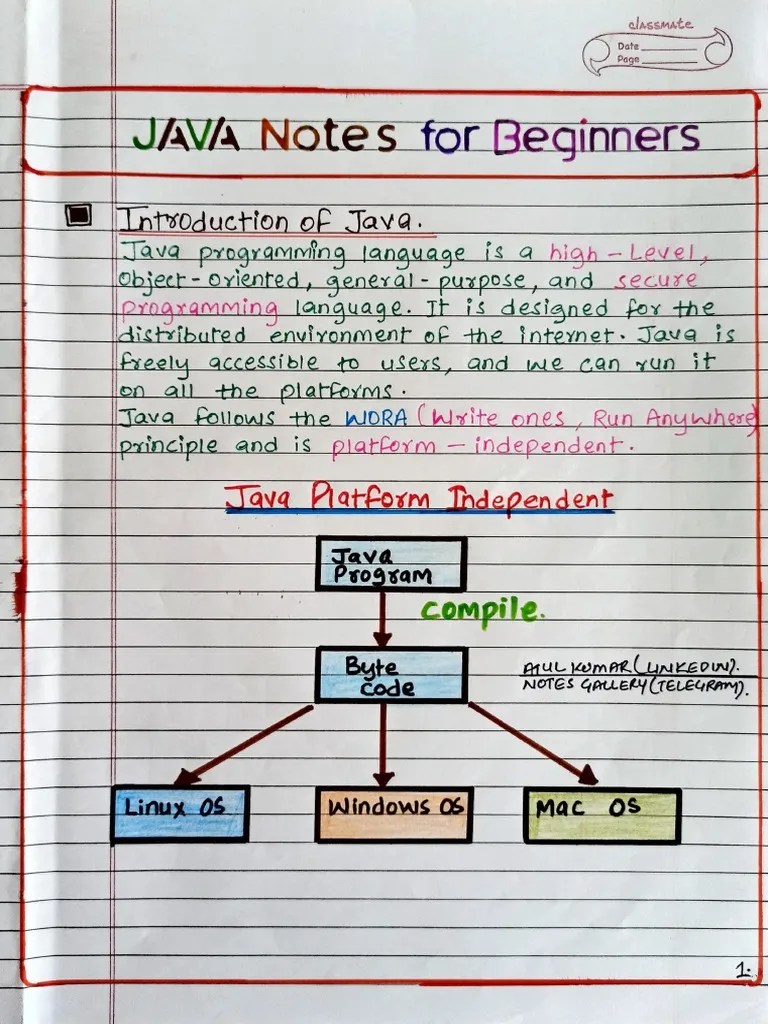 classmate
Date
Page
JAVA Notes for Beginners
Introduction of Java.
Java programming language is a high-Level,
Object-oriented, general-purpose, and secure
programming language. It is designed for the
distributed environment of the internet. Java is
freely accessible to users, and we can run it
on all the platforms.
Java follows the WORA (Write ones, Run Anywhere)
principle and is platform-independent.
Java Platform Independent
Java
Program
compile.
Byte
code
ATUL KUMAR (LINKEDIN).
NOTES GALLERY (TELEGRAM).
Linux OS
Windows OS
Mac OS
1.